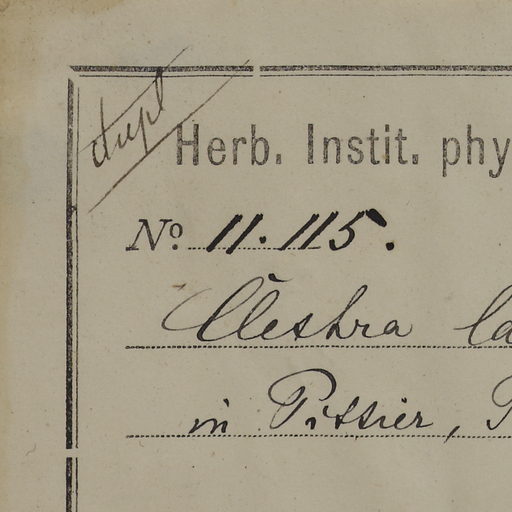 dupl
Herb. Instit. phy
No. 11.115.
Clethra la
in Pittier, P